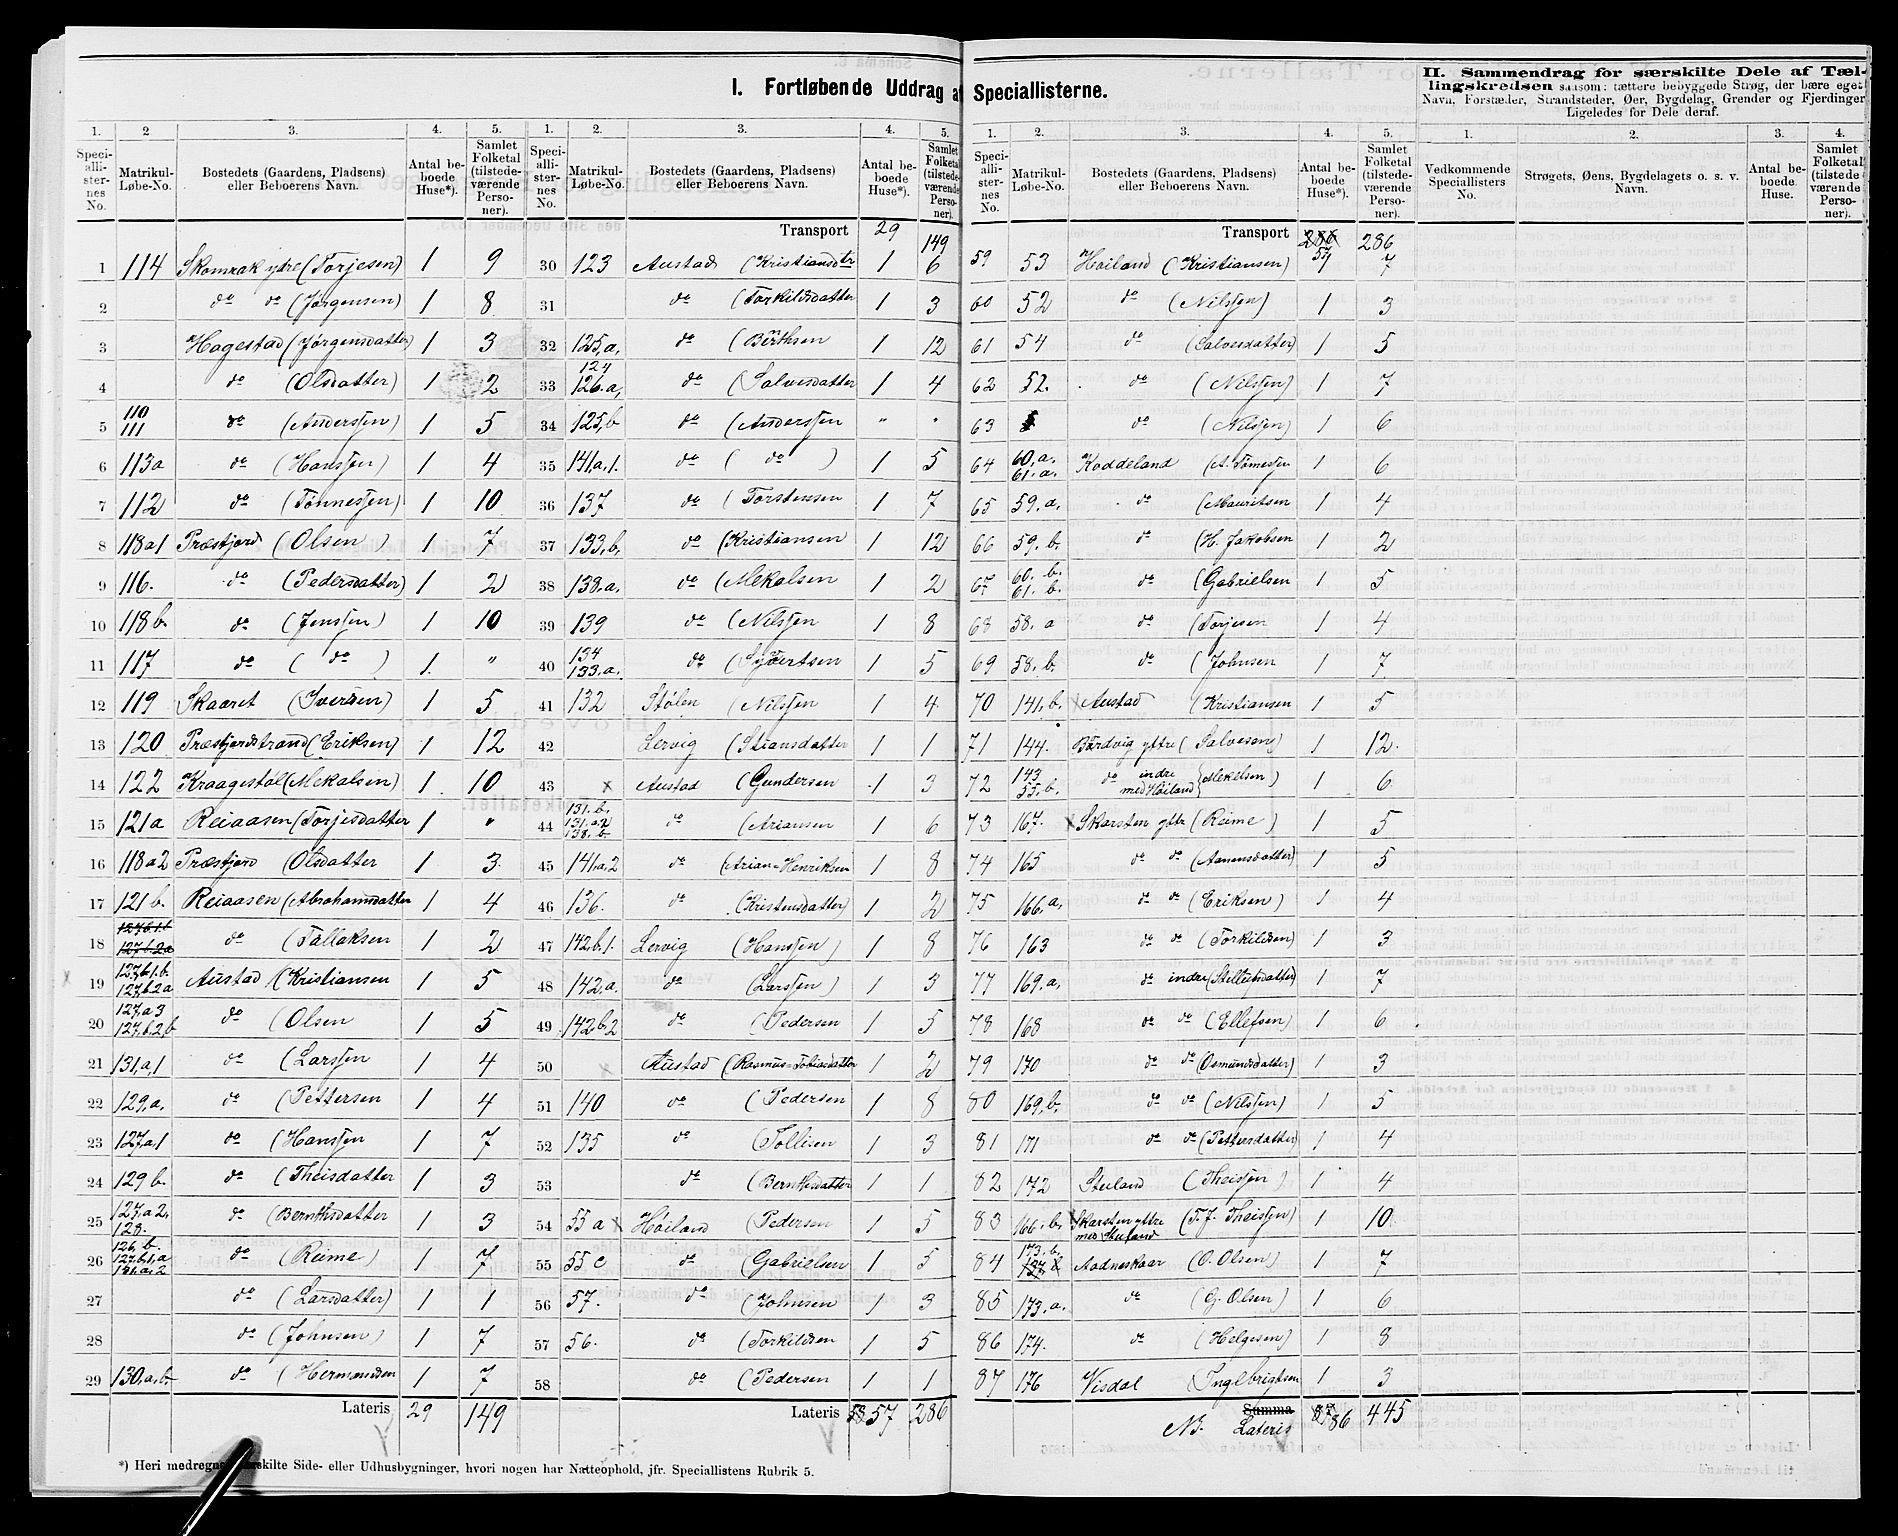 I. Fortløbende Uddrag af Speciallisterne.
II. Sammendrag for særskilte Dele af Tæl-
lingskredsen saasom: tættere bebyggede Strøg, der bære eget
Navn, Forstæder, Strandsteder, Øer, Bygdelag, Grender og Fjerdinger
Ligeledes for Dele deraf.
1. 2 3. 4. 5.
Speci-alli-ster-nes No. Matrikul-Løbe-No. Bostedets (Gaardens, Pladsens) eller Beboerens Navn. Antal be-boede Huse*). Samlet Folketal (tilstede-værende Perso-ner).
1 114 Skomrak ydre (Torjesen) 1 9
2 do do (Jørgensen) 1 8
3 Hagestad (Jørgensdatter) 1 3
4 do (Olsdatter) 1 2
5 110 111 do (Anderssen) 1 5
6 113a do (Hanssen) 1 4
7 112 do (Tønnessen) 1 10
8 118a1 Præstjord (Olsen) 1 7
9 116. do (Pedersdatter) 1 2
10 118b. do (Jenssen) 1 10
11 117 do (do) 1. "
12 119 Skaaret (Iversen) 1 5
13 120 Præstjordstrand (Eriksen) 1 12
14 122 Kraagestøl (Mekalsen) 1 10
15 121a Reiaasen (Torjesdatter 1 "
16 118a2 Præstjord Olsdatter 1 3
17 121b. Reiaasen (Abrahamsdatter 1 4
18 127.b.1.b 127.b.2a do (Tallaksen 1 2
19 127.b.1.b. 127.b.2a Austad (Kristiansen 1 5
20 127.a3 127.b.2,b do (Olsen 1 5
21 131,a,1 do (Larssen 1 4
22 129,a. do (Pettersen 1 4
23 127,a,1 do (Hanssen 1 7
24 129b. do (Theisdatter 1 3
25 127,a2, 128. do (Bernthsdatter 1 3
26 126,b. 127,b,1,a 131,a,2 do (Reime) 1 7
27 do (Larsdatter) 1 1
28 do (Johnsen) 1 7
29 130,a,b. do (Hermansen 1 7
Lateris 29 149
1. 2. 3. 4. 5.
Speci-alli-ster-nes No. Matrikul-Løbe-No. Bostedets (Gaardens, Pladsens) eller Beboerens Navn. Antal be-boede Huse*). Samlet Folketal (tilstede-værende Perso-ner).
Transport 29 149
30 123 Austad (Kristiansdtr 1 6
31 do (Torkildsdatter 1 3
32 125,a, do (Bërthsen 1 12
33 124 126.a, do (Salvesdatter 1 4
34 125,b do (Anderssen " "
35 141.a,1. do (do) 1 5
36 137 do (Torstensen 1 7
37 133,b, do (Kristiansen 1 12
38 138.a. do (Mekalsen 1 2
39 139 do (Nilssen 1 8
40 134 133,a. do (Syvertsen 1 5
41 132 Stølen (Nilssen 1 4
42 Lervig (Stiansdatter 1 1
43 x Austad (Gundersen 1 3
44 131,b. 131,a.2 138,b. do (Ariansen 1 6
45 141a,2 do (Arian=Henriksen 1 8
46 136. do (Kristensdatter) 1 2
47 142b.1. Lervig (Hanssen) 1 8
48 142.a. do (Larssen) 1 3
49 142b,2 do (Pedersen 1 5
50 x Austad (Rasmus=Tobiasdatter 1 2
51 140 do (Pedersen 1 8
52 135 do (Tollisen 1 3
53 do (Bernthsdatter 1 1
54 55a x Høiland (Pedersen 1 5
55 55c do (Gabrielsen 1 5
56 57. do (Johnsen 1 3
57 56. do (Torkildsen 1 5
58 do (Pedersen 1 1
Lateris 58 57 286
*) Heri medregnes særskilte Side- eller Udhusbygninger, hvori nogen har Natteophold, jfr. Speciallistens Rubrik 5.
1. 2. 3. 4. 5.
Speci-alli-ster-nes No. Matrikul-Løbe-No. Bostedets (Gaardens, Pladsens) eller Beboerens Navn. Antal be-boede Huse*). Samlet Folketal (tilstede-værende Perso-ner).
Transport 286 57 286
59 53 Høiland (Kristiansen) 1 7
60 52 do (Nilssen) 1 3
61 54 do (Salvesdatter) 1 5
62 52. do (Nilssen) 1 7
63 do (Nilssen) 1 6
64 60,a. 61.a. Koddeland (A. Tønnessen 1 6
65 59.a. do (Mauritsen 1 4
66 59.b. do (H. Jakobsen 1 2
67 60.b. 61.b. do (Gabrielsen 1 5
68 58.a do (Torjesen 1 4
69 58.b. do (Johnsen 1 7
70 141.b. x Austad (Kristiansen 1 5
71 144. Bördvig yttre (Salvesen) 1 12.
72 143 55,b. do indre med Høiland (Mekelsen) 1 6
73 167. x Skarsten yttre (Reime) 1 5
74 165 do do (Aanensdatter) 1 5
75 166.a, do do (Eriksen) 1 4
76 163 do do (Torkildsen) 1 3
77 169.a, do indre (Stellefsdatter) 1 7
78 168 do do (Ellefsen) 1 6
79 170 do do (Osmundsdatter) 1 3
80 169,b. do do (Nilssen) 1 5
81 171 do do (Pettersdatter) 1 4
82 172 Stuland (Theissen) 1 4
83 166.b. x Skarsten yttre med Stuland (T. J. Theissen) 1 10
84 173,b. Aadneskaar (O. Olsen) 1 7
85 173,a. do (G. Olsen) 1 6
86 174. do (Helgesen) 1 8
87 176 Visdal (Ingebrigtsen 1 3
Summa
NB. Lateris 87 86 445
1. 2. 3. 4.
Vedkommende Speciallisters No. Strøgets, Øens, Bygdelagets o. s. v. Navn. Antal be-boede Huse. Samlet Folketal (tilstede værende Perso-ner).